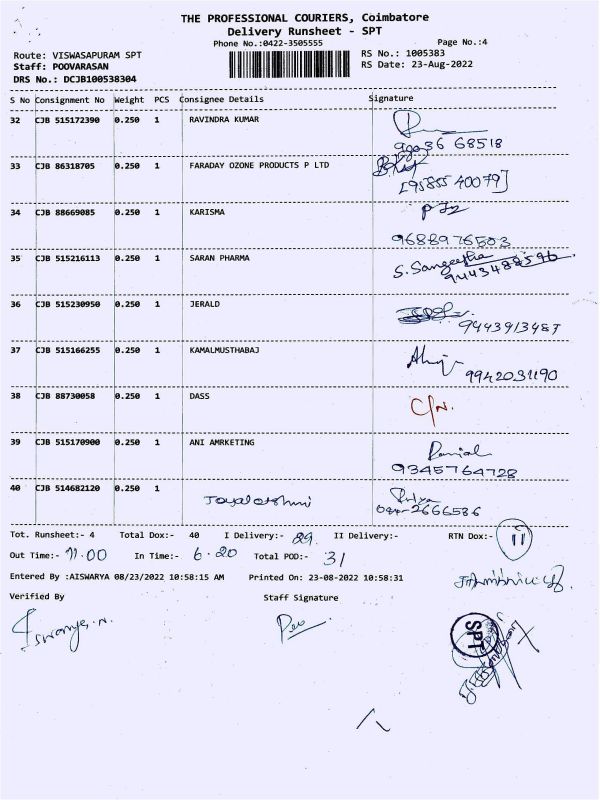 THE PROFESSIONAL COURIERS, Coimbatore
Delivery Runsheet - SPT
Phone No.:0422-3505555 Page No.:4
Route: VISWASAPURAM SPT RS No.: 1005383
Staff: POOVARASAN RS Date: 23-Aug-2022
DRS No.: DCJB100538304
S No Consignment No Weight PCS Consignee Details Signature
32 CJB 515172390 0.250 1 RAVINDRA KUMAR
68518
33 CJB 86318705 0.250 1 FARADAY OZONE PRODUCTS P LTD
[95855 40079]
34 CJB 88669085 0.250 1 KARISMA
9688976503
35 CJB 515216113 0.250 1 SARAN PHARMA S. Sangeetha
9443488596
36 CJB 515230950 0.250 1 JERALD
9443913487
37 CJB 515166255 0.250 1 KAMALMUSTHABAJ
9942031190
38 CJB 88730058 0.250 1 DASS C/N.
39 CJB 515170900 0.250 1 ANI AMRKETING
9345764728
40 CJB 514682120 0.250 1 Priya
2666586
Tot. Runsheet:- 4 Total Dox:- 40 I Delivery:- 29 II Delivery:- RTN Dox:- 11
Out Time:- 11.00 In Time:- 6.20 Total POD:- 31
Entered By :AISWARYA 08/23/2022 10:58:15 AM Printed On: 23-08-2022 10:58:31
Verified By Staff Signature
SPT